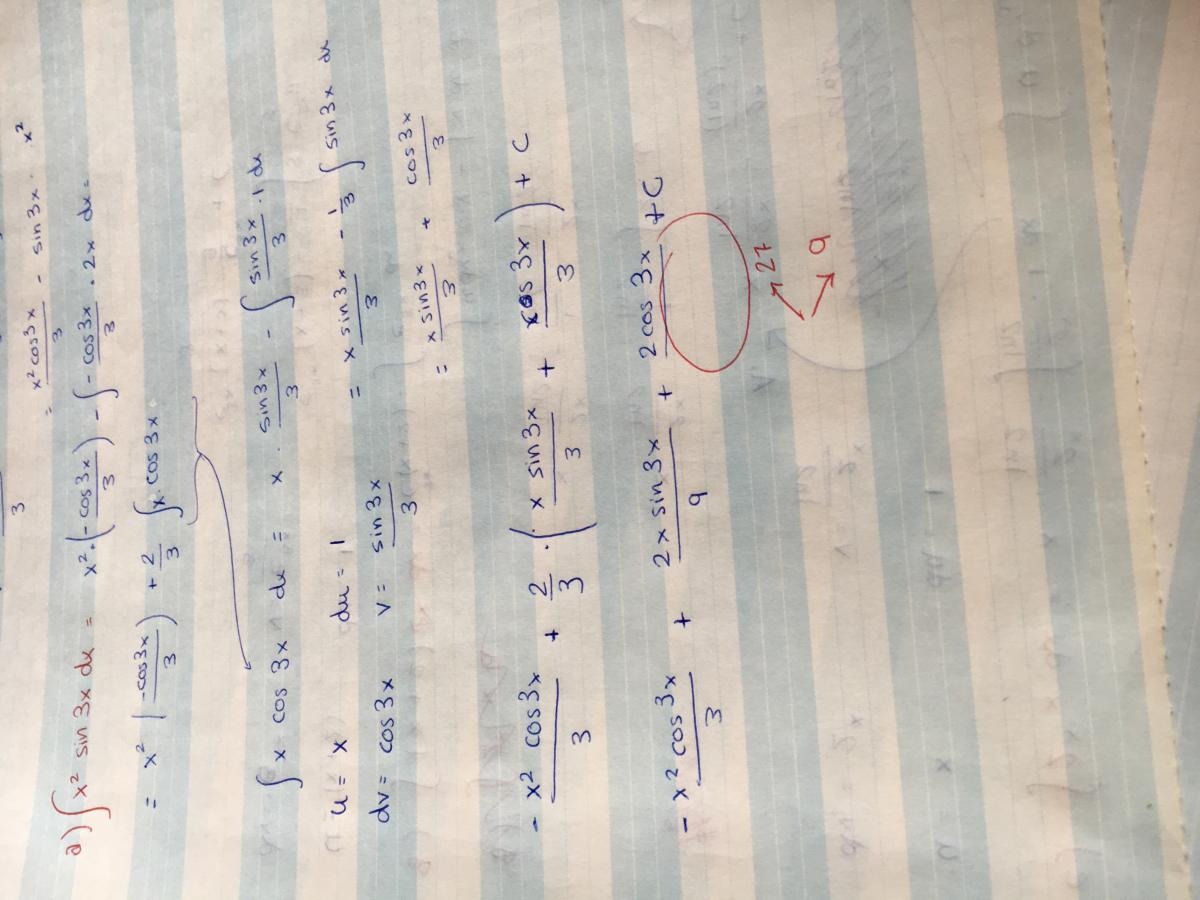 3
= x² cos3x / 3 - sin 3x · x²
a) ∫ x² sin 3x dx = x² · (-cos3x / 3) - ∫ -cos3x / 3 · 2x dx =
= x² (-cos3x / 3) + 2/3 ∫ x · cos 3x
∫ x cos 3x dx = x · sin3x / 3 - ∫ sin3x / 3 · 1 dx
u = x du = 1 = x sin3x / 3 - 1/3 ∫ sin3x dx
dv = cos3x v = sin3x / 3 = x sin3x / 3 + cos3x / 3
- x² cos3x / 3 + 2/3 · (x sin3x / 3 + cos 3x / 3) + C
- x² cos3x / 3 + 2x sin3x / 9 + 2cos 3x + C
27
9